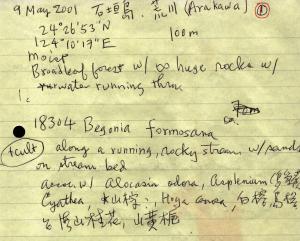 9 May 2001 石垣島. 荒川 (Arakawa) ①
24°26'53"N 100m
124°10'17"E
moist
Broadleaf forest w/ huge rocks w/
running thru
18304 Begonia formosana
cult along a running, rocky stream w/ sands
on stream bed
assoc w/ Alocasia odora, Asplenium
Cyathea, Hoya
台湾山桂花, 山黄梔